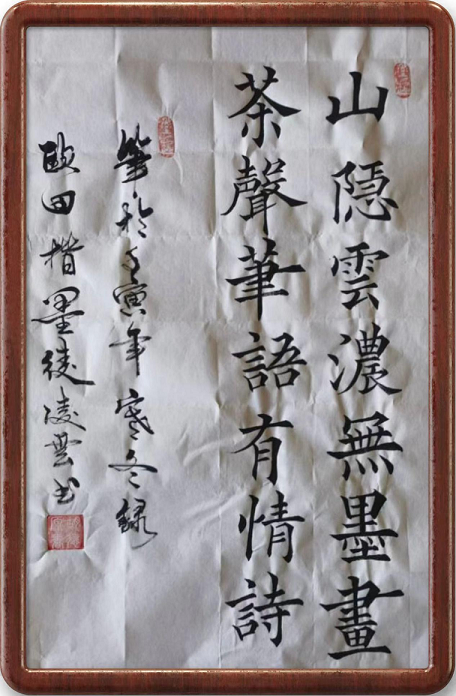 山隱雲濃無墨畫
茶聲華語有情詩
筆於壬寅年寒冬錄
歐田楷墨徒凌雲书